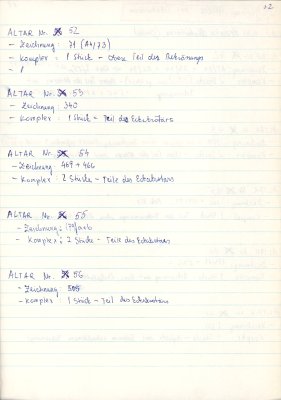 12
ALTAR Nr. 52
- Zeichnung: 71 (A4/73)
- Komplex: 1 Stück - Obere Teil des
ALTAR Nr. 53
- Zeichnung: 340
- Komplex: 1 Stück - Teil des Eckaltars
ALTAR Nr. 54
- Zeichnung: 467 + 466
- Komplex: 2 Stücke - Teile des Eckaltars
ALTAR Nr. 55
- Zeichnung:
- Komplex: 2 Stücke - Teile des Eckaltars
ALTAR Nr. 56
- Zeichnung:
- Komplex: 1 Stück - Teil des Eckaltars